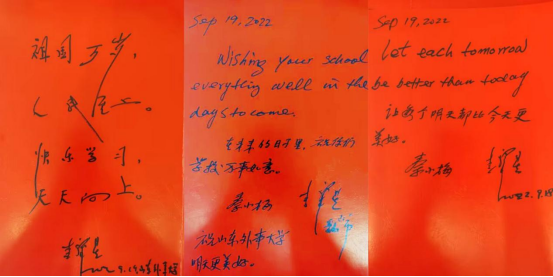 祖国万岁，
人民至上。
快乐学习，
天天向上。
Sep 19, 2022
Wishing your school
everything well in the
days to come.
在未来的日子里，祝你们
学校万事如意。
秦小梅
祝山东外事大学
明天更美好。
Sep 19, 2022
Let each tomorrow
be better than today
让每个明天都比今天更
美好。
秦小梅